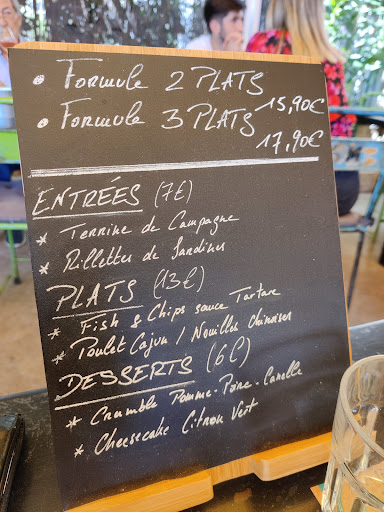 • Formule 2 PLATS 15,90€
• Formule 3 PLATS 17,90€
ENTRÉES (7€)
* Terrine de Campagne
* Rillettes de Sardines
PLATS (13€)
* Fish & Chips sauce Tartare
* Poulet Cajun / Nouilles chinoises
DESSERTS (6€)
* Crumble Pomme-Poire-Canelle
* Cheesecake Citron Vert